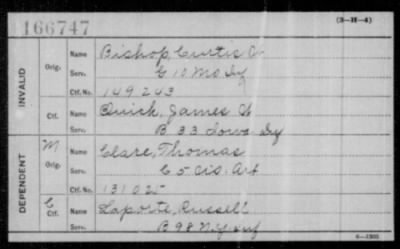 166747
(3-H-4)
INVALID
Orig. Name Bishop, Curtis C.
Serv. G 10 Mo Inf
Ctf. No. 149243
Ctf. Name Quick, James H
Serv. B 33 Iowa Inf
DEPENDENT
M Orig. Name Clare, Thomas
Serv. C 5 Art
Ctf. No. 131025
C Ctf. Name Laporte, Russell
Serv. B 98 N.Y. Inf